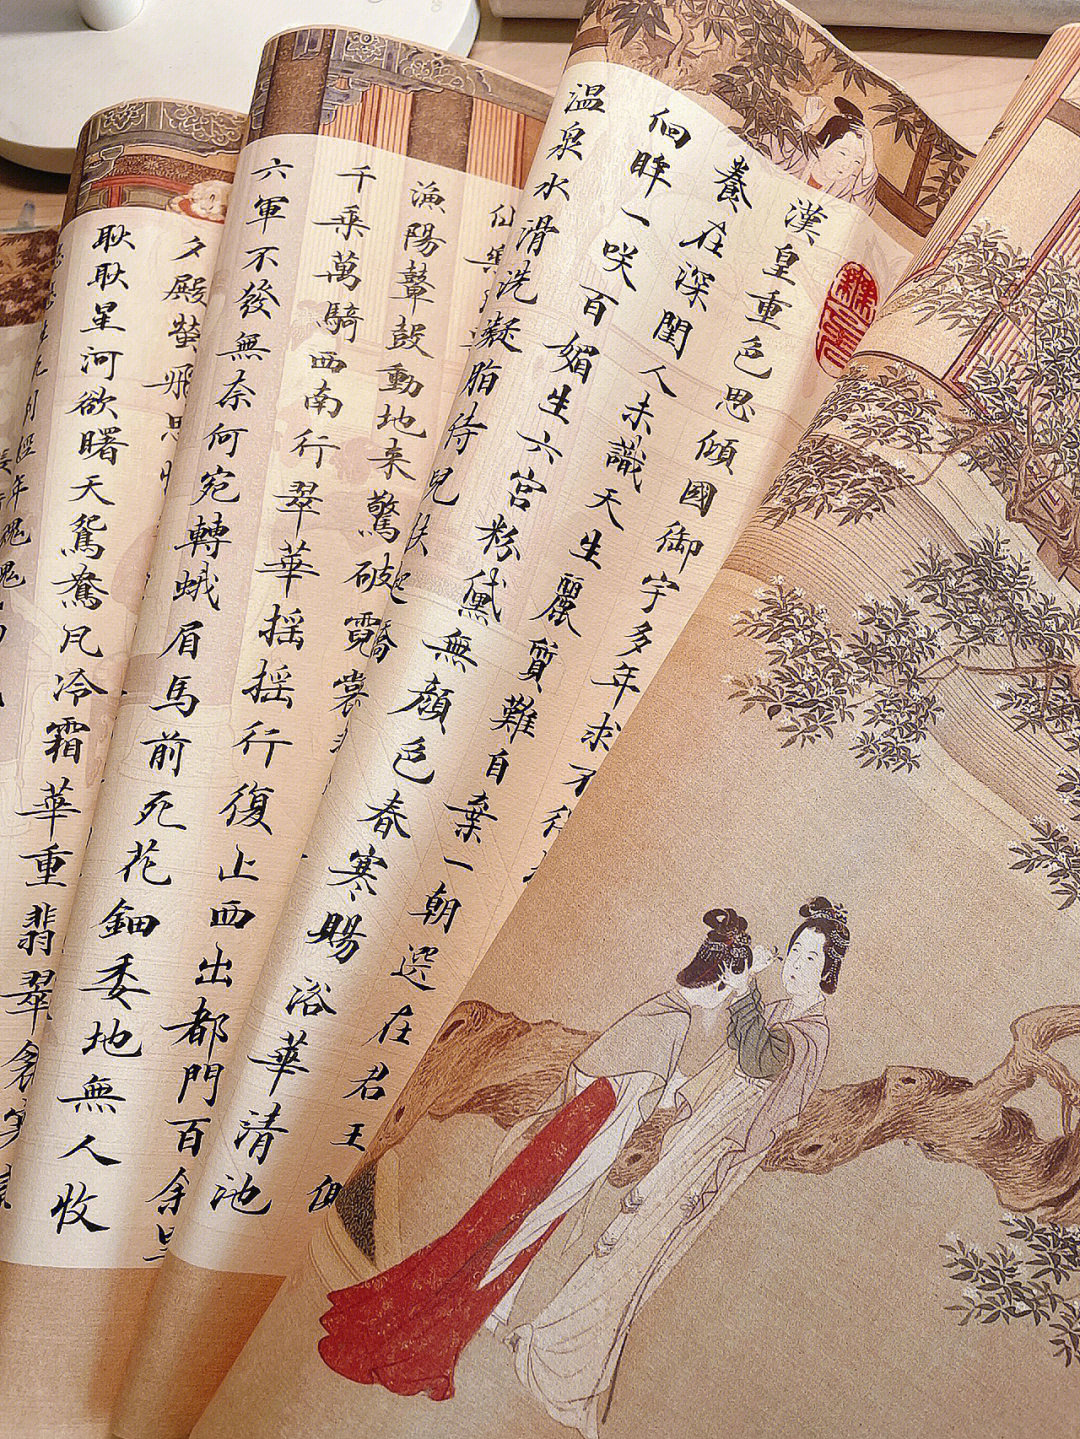 漢皇重色思傾國御宇多年求不
養在深閨人未識天生麗質難自棄一朝選在君王側
佪眸一咲百媚生六宮粉黛無顏色春寒賜浴華清池
温泉水滑洗凝脂侍兒扶起嬌
仙樂
漁陽鼙鼓動地来驚破霓裳
千乘萬騎西南行翠華搖搖行復止西出都門百余里
六軍不發無奈何宛轉蛾眉馬前死花鈿委地無人收
夕殿螢飛思
耿耿星河欲曙天鴛鴦瓦冷霜華重翡翠衾寒
生死別經年魂魄